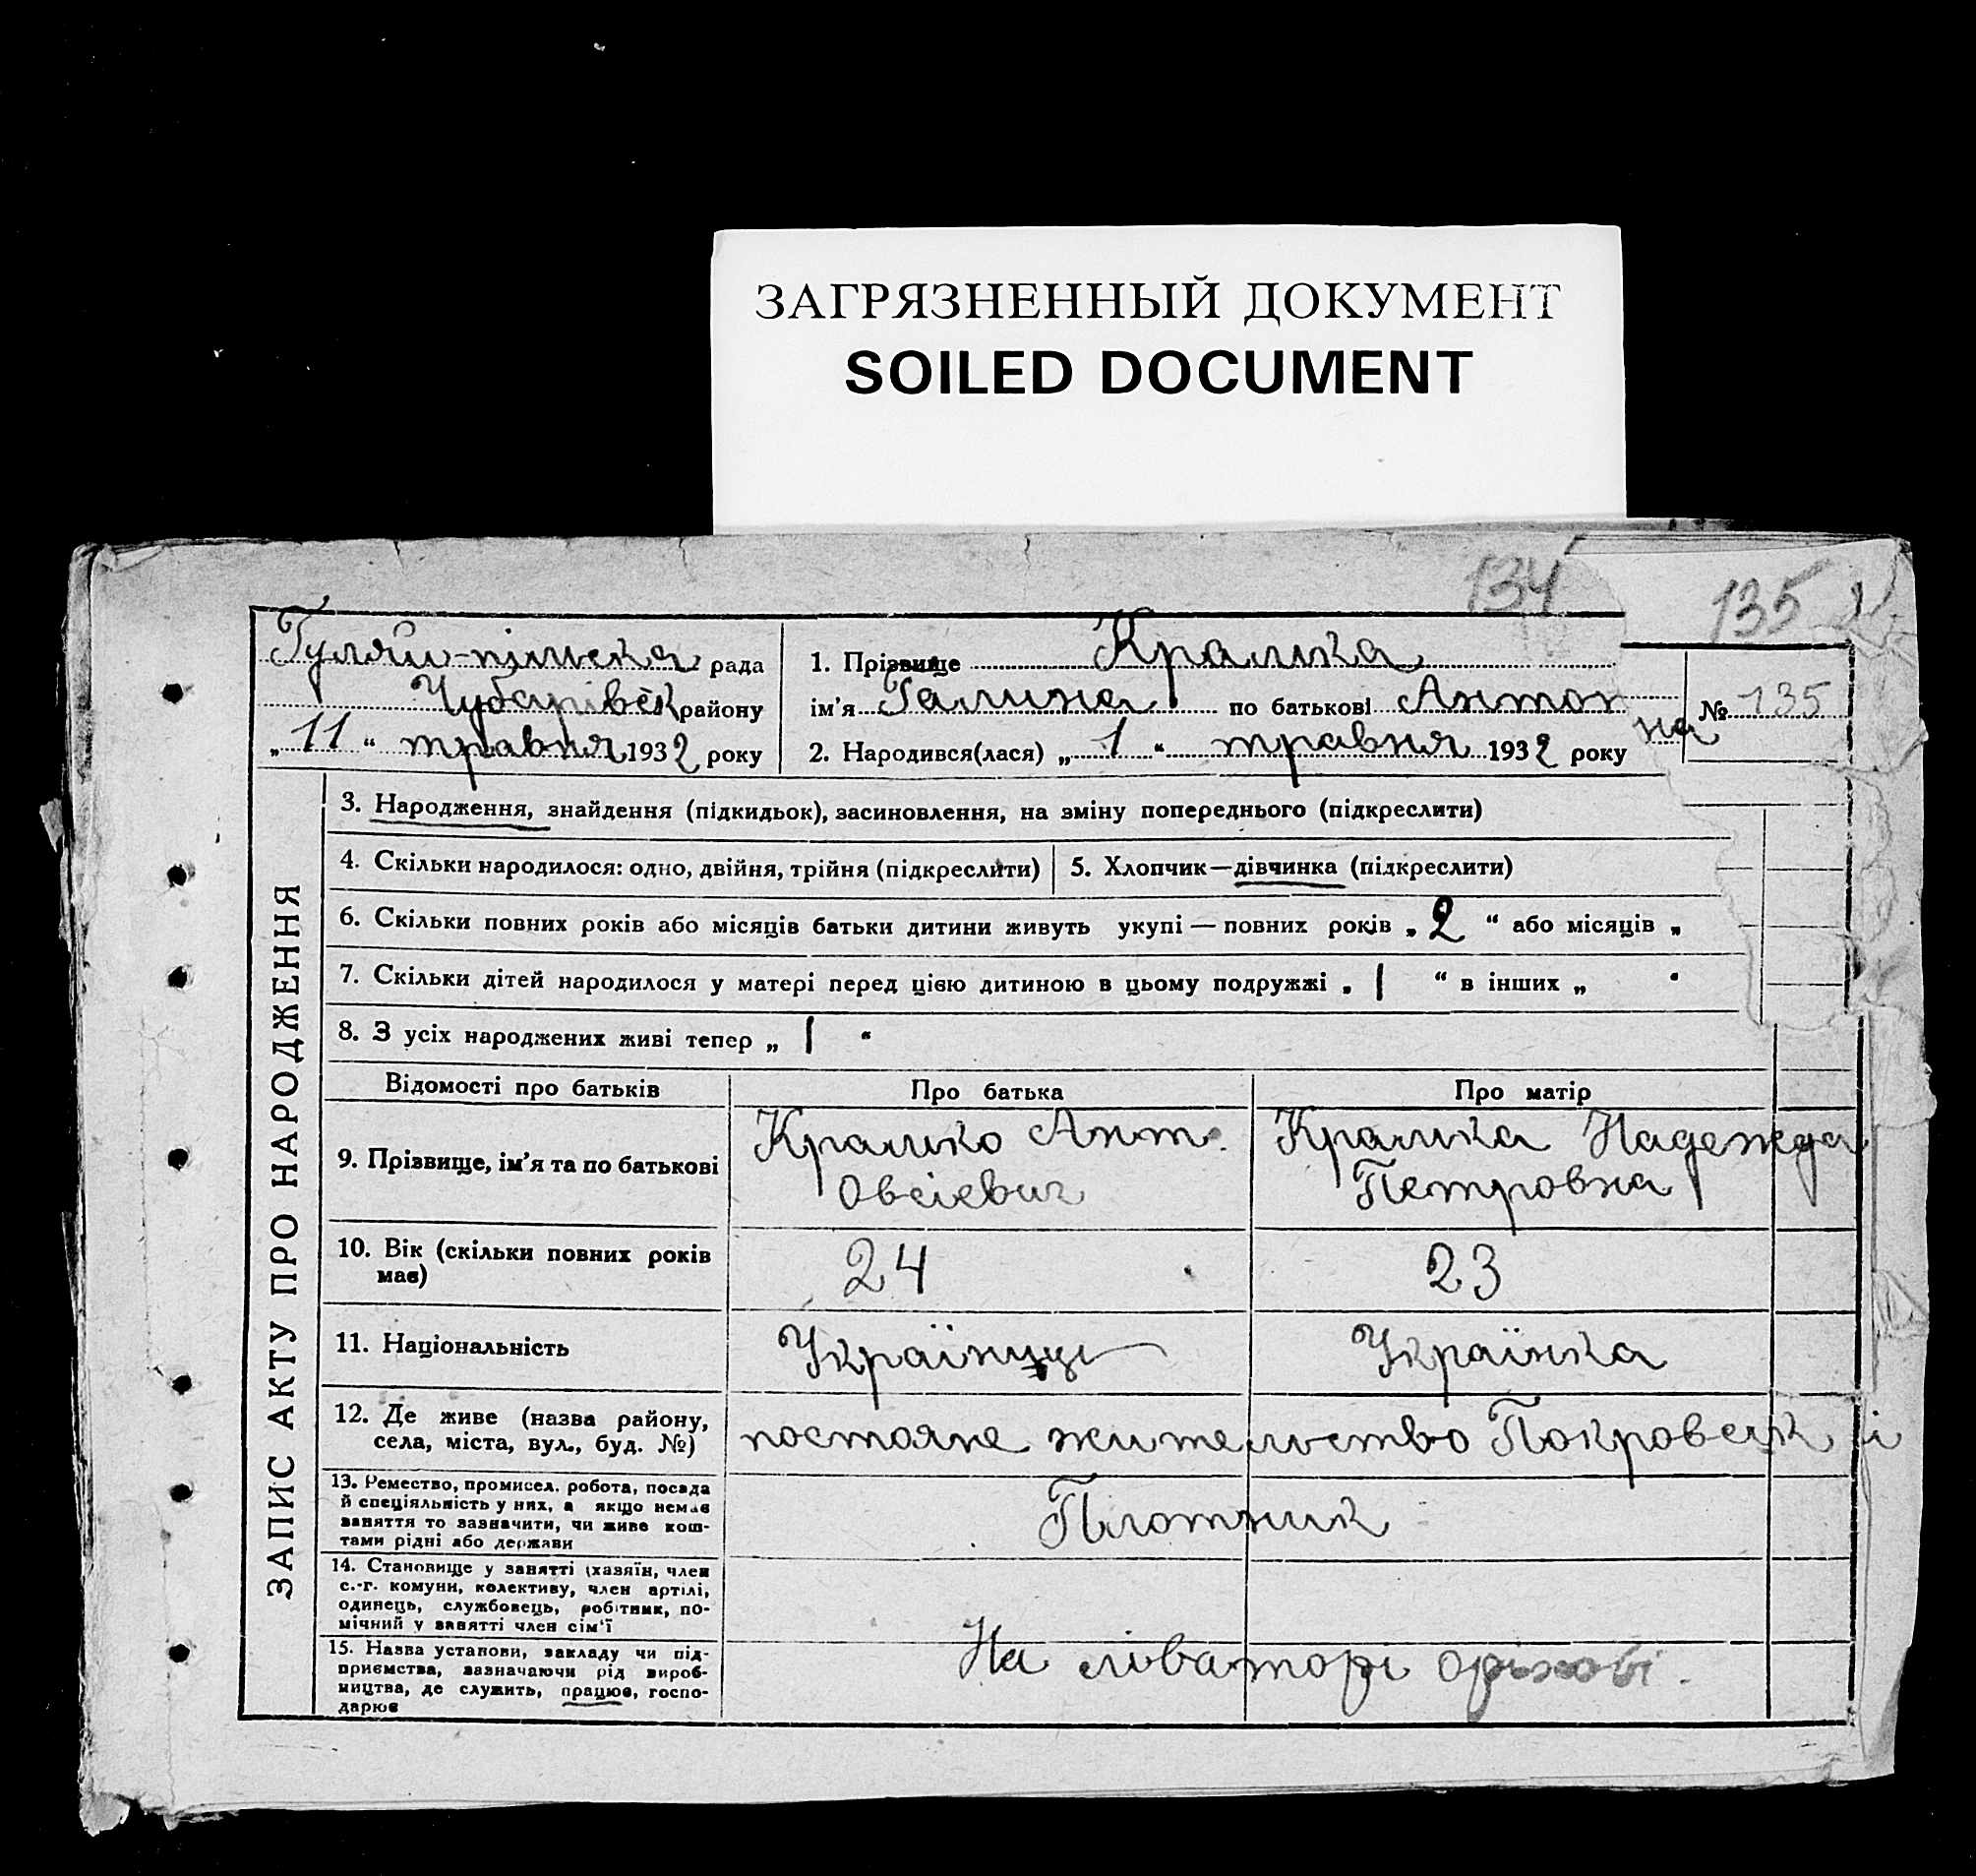 ЗАГРЯЗНЕННЫЙ ДОКУМЕНТ
SOILED DOCUMENT
134
135
Гуляй-пільска рада
Чубарівск району
„11“ травня 1932 року
1. Прізвище Крамка
ім'я Галина по батькові Антон
на
№ 135
2. Народився(лася) „1“ травня 1932 року
ЗАПИС АКТУ ПРО НАРОДЖЕННЯ
3. Народження, знайдення (підкидьок), засиновлення, на зміну попереднього (підкреслити)
4. Скільки народилося: одно, двійня, трійня (підкреслити)
5. Хлопчик—дівчинка (підкреслити)
6. Скільки повних років або місяців батьки дитини живуть укупі — повних років „2“ або місяців „
7. Скільки дітей народилося у матері перед цією дитиною в цьому подружжі „1“ в інших „ “
8. З усіх народжених живі тепер „1“
Відомості про батьків
Про батька
Про матір
9. Прізвище, ім'я та по батькові
Крамко Ант.
Овсієвич
Крамка Надежда
Петровна
10. Вік (скільки повних років
має)
24
23
11. Національність
Українці
Українка
12. Де живе (назва району,
села, міста, вул., буд. №)
постояне жительство Покровськ
13. Ремество, промисел. робота, посада
й спеціяльність у них, а якщо немає
заняття то зазначити, чи живе кош-
тами рідні або держави
Плотник
14. Становище у занятті (хазяїн, член
с.-г. комуни, колективу, член артілі,
одинець, службовець, робітник, по-
мічний у занятті член сім'ї
15. Назва установи, закладу чи під-
приємства, зазначаючи рід вироб-
ництва, де служить, працює, госпо-
дарює
На ліваторі оріхові.